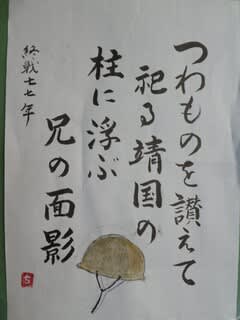 つわものを讃えて
祀る靖国の
柱に浮ぶ
兄の面影
終戦七七年